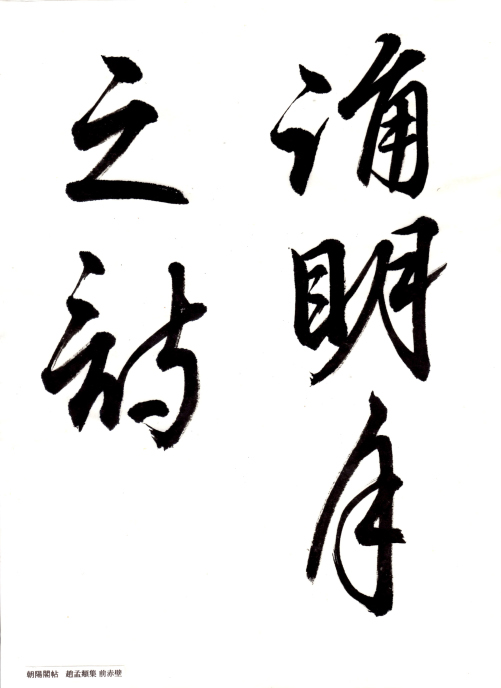 誦明月
之詩
朝陽閣帖 趙孟頫集 前赤壁